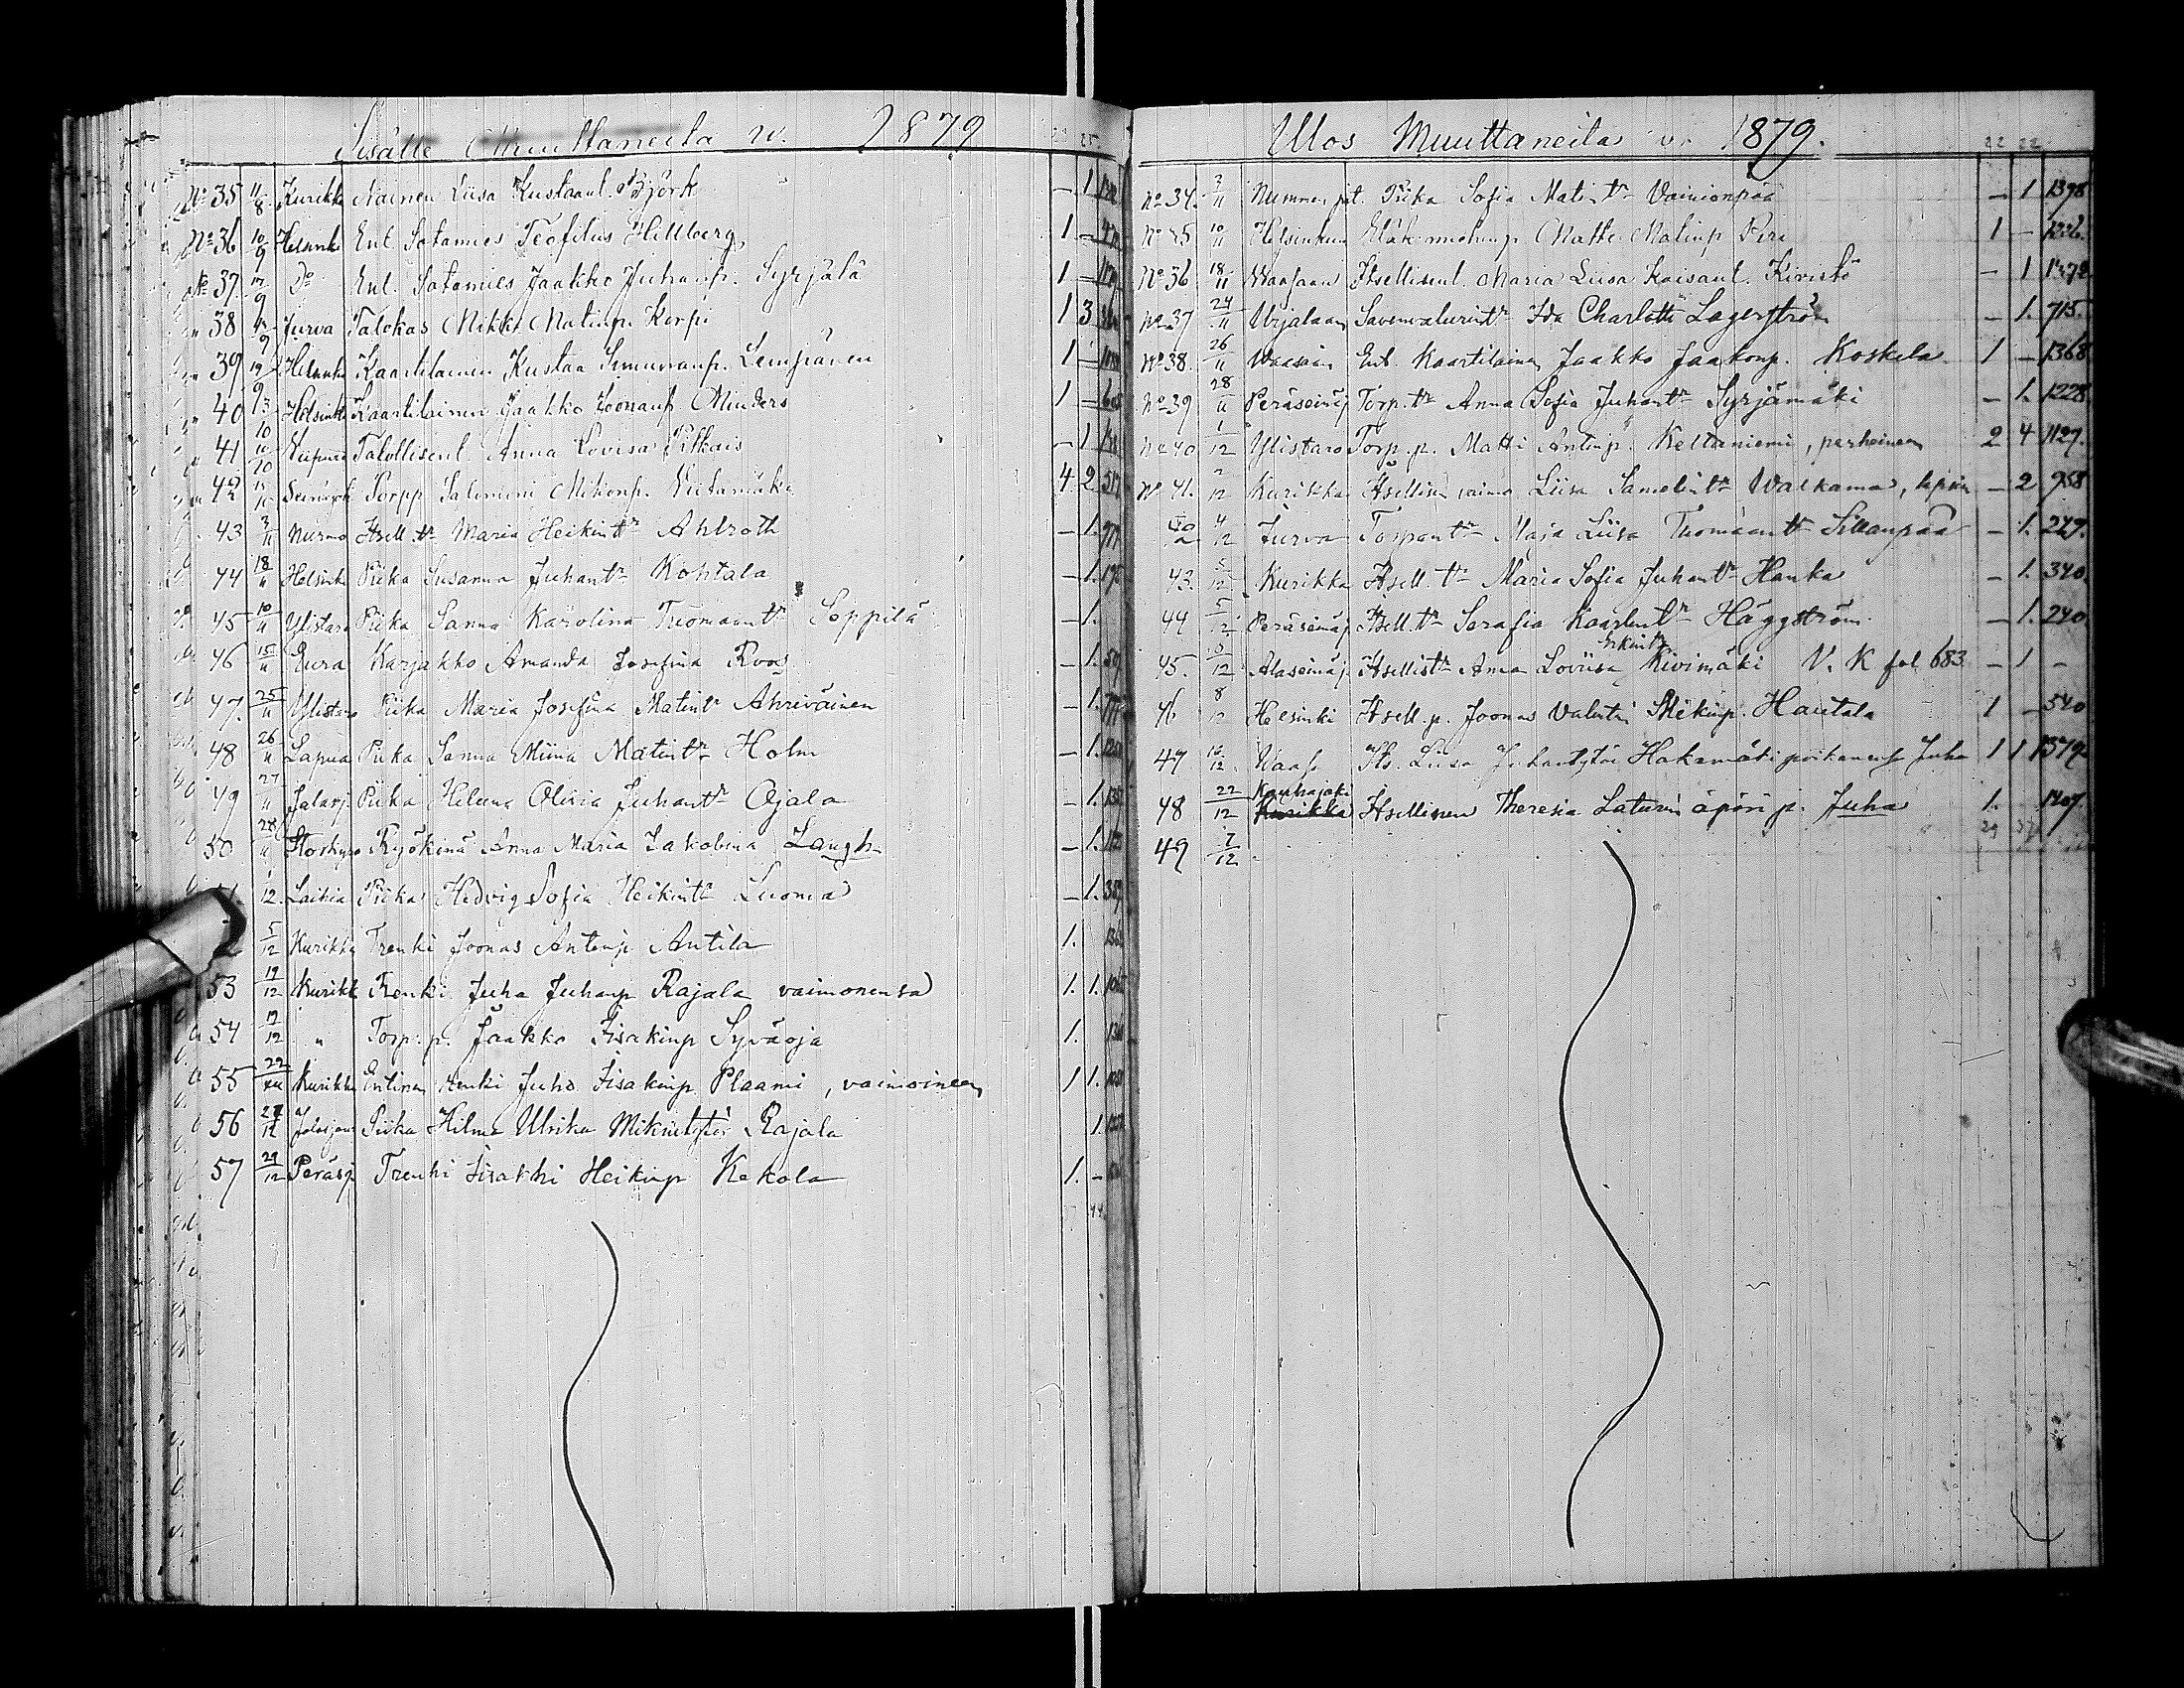 Sisälle Muuttaneita v. 1879
25
No 35 11/8 Kurikka Nainen Liisa Kustaant. Björk - 1
No 36 10/9 Helsinki Ent. Sotamies Teofilus Hellberg 1 -
No 37 /9 Do Ent. Sotamies Jaakko Juhanp. Syrjälä 1 -
" 38 /9 Jurva Talokas Mikki Matinp. Korpi 1 3
" 39 Helsinki Kaartilainen Kustaa Lempänen 1 -
" 40 Helsinki Kaartilainen Jaakko Joonanp Minders 1 -
" 41 10/10 Viipuri Talollisent. Anna Lovisa Pitkais - 1
" 42 Torpp Salomoni Mikonp. Viitamäki 4 2
43 3/11 Nurmo Itsell. tr Maria Heikintr Ahlroth - 1.
44 18/11 Helsinki Piika Susanna Juhantr Kohtala - 1.
45 10/11 Ylistaro Piika Sanna Karolina Tuomaantr Seppilä - 1.
46 15/11 Eura Karjakko Amanda Josefina Roos - 1.
47. 25/11 Ylistaro Piika Maria Josefina Matintr Ahriväinen - 1.
48 26/11 Lapua Piika Sanna Miina Matintr Holm - 1
49 27/11 Jalasj Piika Helena Olivia Juhantr Ojala - 1.
50 28/11 Ryökinä Anna Maria Jakobina Laugh - 1.
12. Laihia Piika Hedvig Sofia Heikintr Luoma - 1.
5/12 Kurikka Trenki Joonas Antinp Antila 1.
53 19/12 Kurikk Renki Juha Juhanp Rajala vaimonensa 1. 1.
54 19/12 " Torp. p. Jaakko Iisakinp Syväoja 1.
55 22/XII Kurikka Entinen renki Juho Iisakinp. Plaami, vaimoineen 1 1.
56 27/12 Piika Hilma Ulrika Mikintytär Rajala 1.
57 29/12 Peräsj Trenki Iisakki Heikinp Kekola 1. -
Ulos Muuttaneita v. 1879.
22 22
No 34. 3/11 Nummen pit. Piika Sofia Matintr Vainionpää - 1. 1398
No 35 10/11 Helsinkiin Matts Matinp 1 -
No 36 18/11 Waasaan Itsellisent. Maria Liisa Kaisant. Kivistö - 1
No 37 24/11 Urjalaan Ida Charlotta Lagerström - 1. 715.
No 38. 26/11 Waasaan Ent. Kaartilainen Jaakko Jaakonp. Koskela 1 - 1368
No 39 28/11 Peräseinäj Torp. tr Anna Sofia Juhantr Syrjämäki - 1. 1228
No 40 1/12 Ylistaro Torp. p. Matti Antinp. Keltaniemi, perheineen 2 4 1127.
No 41. 2/12 Kurikka Itsellisen vaimo Liisa Samelintr Walkama, - 2 958
4/12 Jurva Torpantr Maja Liisa Thomaantr Sillanpää - 1. 249.
43. 5/12 Kurikka Itsell. tr Maria Sofia Juhantr Hanka - 1. 340
44 5/12 Peräseinäj. Itsell. tr Serafia Kaarlentr Häggström - 1. 240
45. /12 Alaseinäj Itsellistr Anna Loviisa Erkintr Kivimäki V. K fol 683 - 1 -
46 8/12 Helsinki Itsell. p. Joonas Valentin Hautala 1 - 540
47 /12. Waasa Its. Liisa Juhantytär Hakamäki poikanensa Juha 1 1 1379
48 22/12 Kauhajoki Kurikka Itsellinen Theresia Laturin äpäri p. Juha 1. -
49 7/12